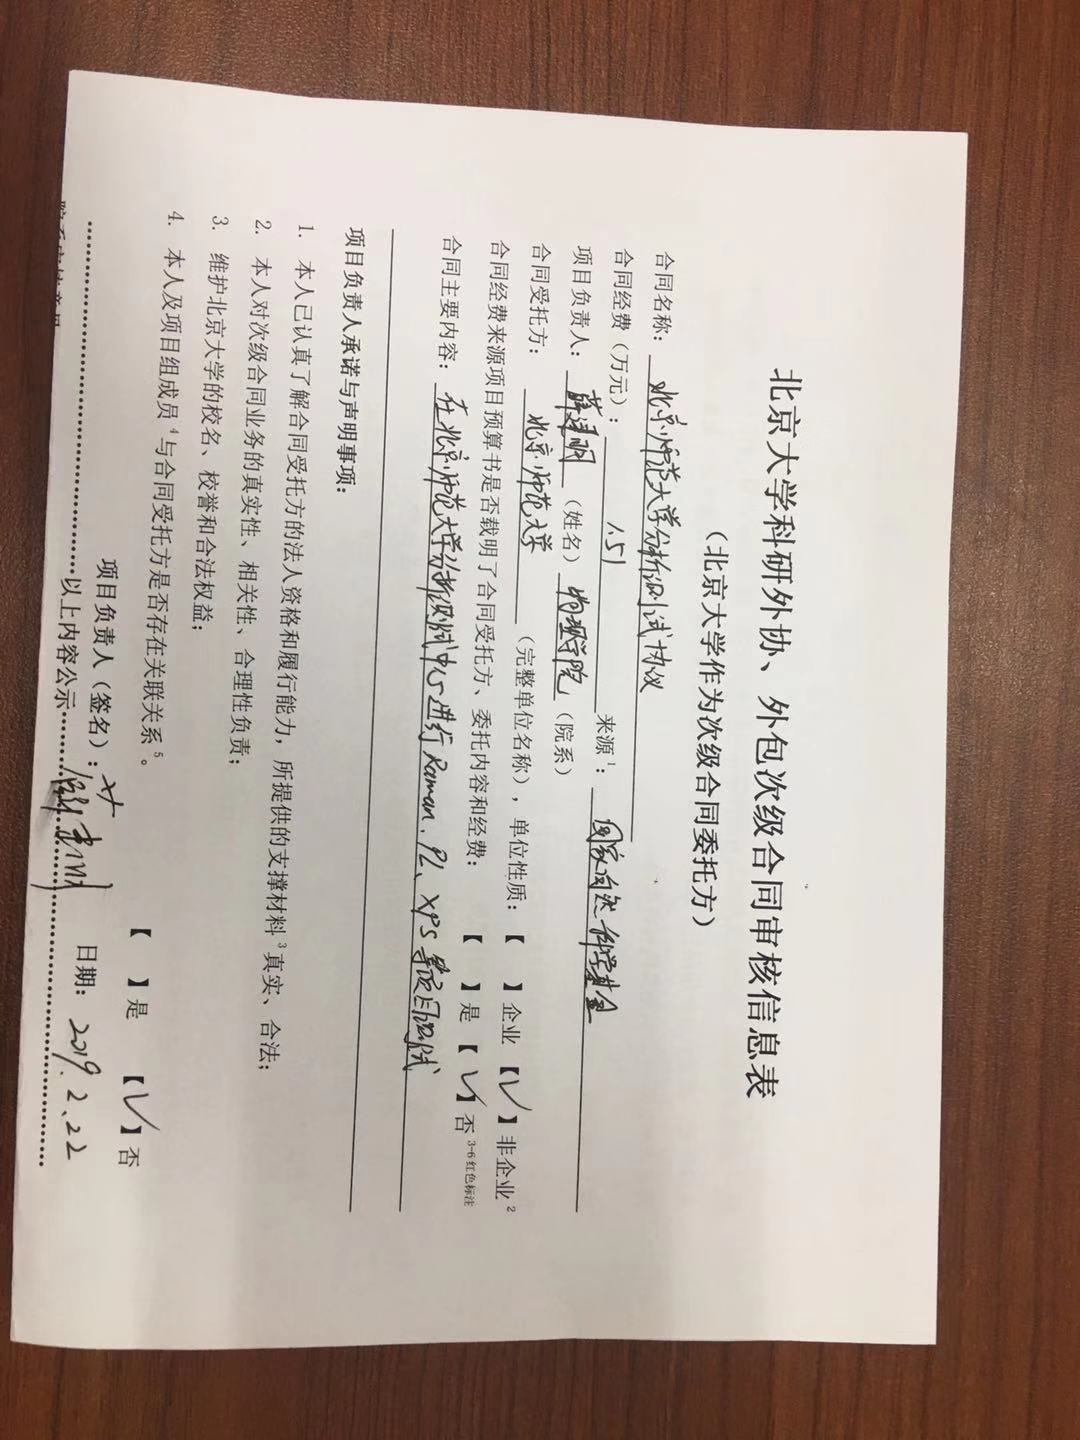 北京大学科研外协、外包次级合同审核信息表
（北京大学作为次级合同委托方）
合同名称：北京师范大学分析测试协议
合同经费（万元）：1.51 来源1：国家自然科学基金
项目负责人：薛建明（姓名）物理学院（院系）
合同受托方：北京师范大学（完整单位名称），单位性质：【 】企业【√】非企业2
合同经费来源项目预算书是否载明了合同受托方、委托内容和经费：【 】是【√】否3-6红色标注
合同主要内容：在北京师范大学分析测试中心进行Raman、PL、XPS等项目测试
项目负责人承诺与声明事项：
1. 本人已认真了解合同受托方的法人资格和履行能力，所提供的支撑材料3真实、合法；
2. 本人对次级合同业务的真实性、相关性、合理性负责；
3. 维护北京大学的校名、校誉和合法权益；
4. 本人及项目组成员4与合同受托方是否存在关联关系5。 【 】是 【√】否
项目负责人（签名）：薛建明 日期：2019.2.22
以上内容公示